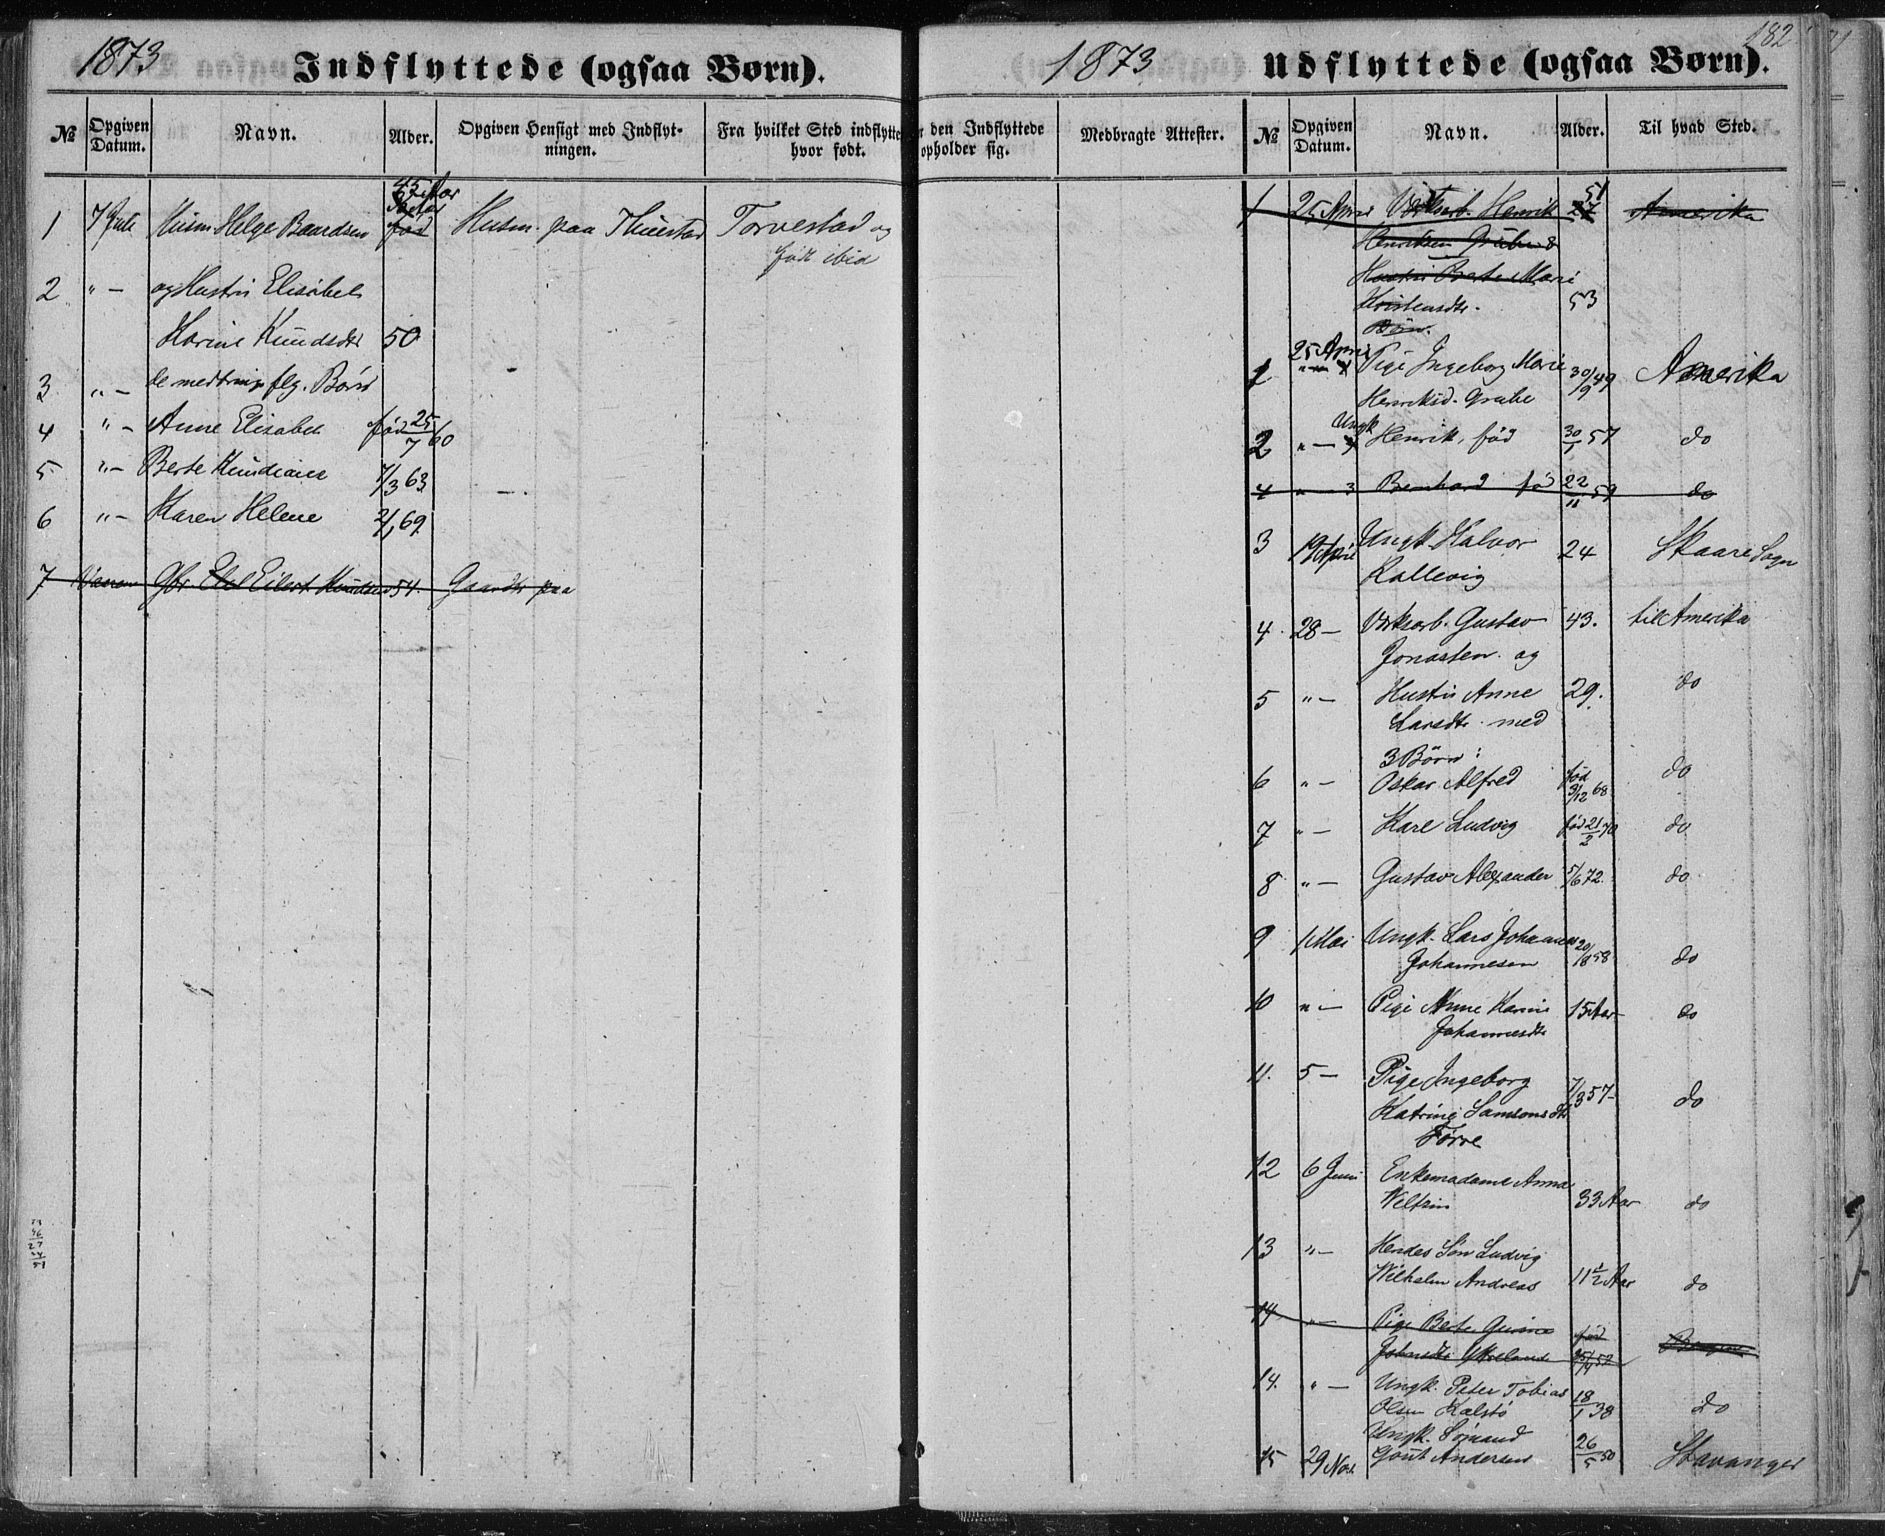 1873
Indflyttede (ogsaa Børn).
№ Opgiven Datum. Navn. Alder. Opgiven Hensigt med Indflyt-ningen. Fra hvilket Sted indflytte hvor født.
1 7 Juli Husm Helge Baardsen 45 Aar født Husm. paa Thuestad Torvestad og
født ibid
2 " — og Hustru Elisabet
Karine Knudsdtr 50
3 " — de medbringe flg. Børn
4 " — Anne Elisabet fød 25/7 60
5 " — Berte Knudiane 7/3 63
6 " — Karen Helene 2/1 69
7 Gbr. Eilert Knudsen 54. Gaardbr paa
1873
182
Udflyttede (ogsaa Børn).
den Indflyttede opholder sig. Medbragte Attester. № Opgiven Datum. Navn. Alder. Til hvad Sted.
1 25 April Værksarb. Henrik 51 Amerika
Henriksen Grube &
Hustru Berte Marie
Kristensdtr. 53
Børn.
1 25 April Pige Ingeborg Marie 30/9 49 Amerika
Henriksd. Grube
2 " — Ungk Henrik, fød 30/1 57 do
4 " 3 Bernhard fød 22/11 59 do
3 19 April Ungk Halvor 24 Skaare Sogn
Kallevig
4 28 — Værksarb. Gustav 43. til Amerika
Jonassen og
5 " — Hustru Anne 29. do
Larsdtr. med
3 Børn:
6 " — Oskar Alfred fød 31/12 68 do
7 " — Karl Ludvig fød 21/2 70 do
8 " — Gustav Alexander 5/6 72. do
9 1 Mai Ungk. Lars Johannes 20/8 58 do
Johannesen
10 " — Pige Anne Karine 15 Aar do
Johannesdtr
11. 5 — Pige Ingeborg 7/3 57 — do
Katrine Samsonsdtr
Førre
12 6 Juni Enkemadame Anna
33 Aar do
13 " — Hendes Søn Ludvig
Wilhelm Andreas 11 1/2 Aar do
14 " — Pige Berte fød
Johnsdtr
14. " — Ungk. Peter Tobias 18/1 38 do
Olsen Kalstø
Ungk. Sømand
15 29 Nov. Gout Andersen 26/5 50 Stavanger